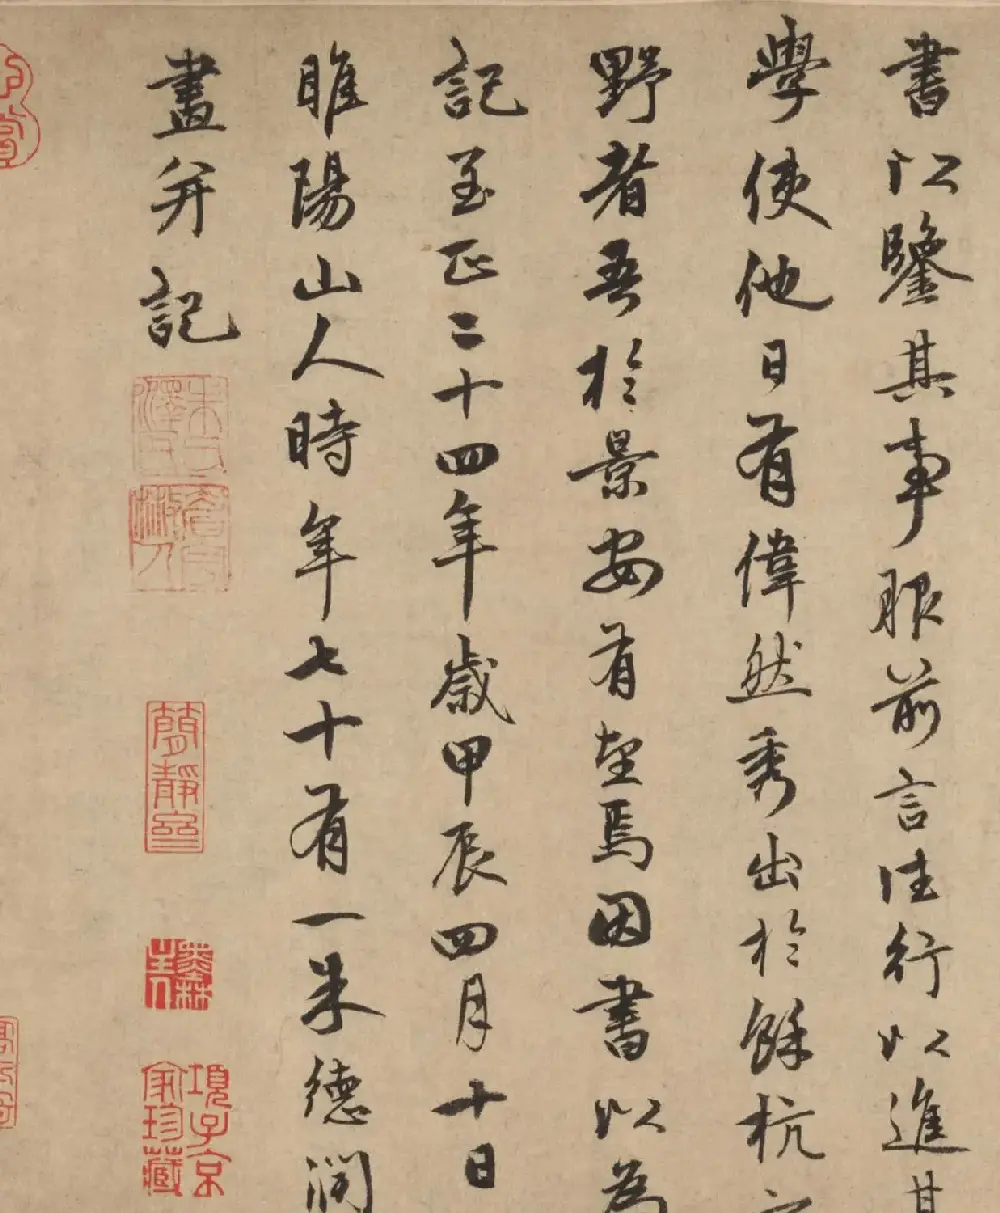 書以鑒其事服前言往行以進其
學使他日有偉然秀出於餘杭之
野者吾於景安有望焉因書以為
記至正二十四年歲甲辰四月十日
睢陽山人時年七十有一朱德潤
畫并記
朱氏澤民
簡靜
項子京家珍藏